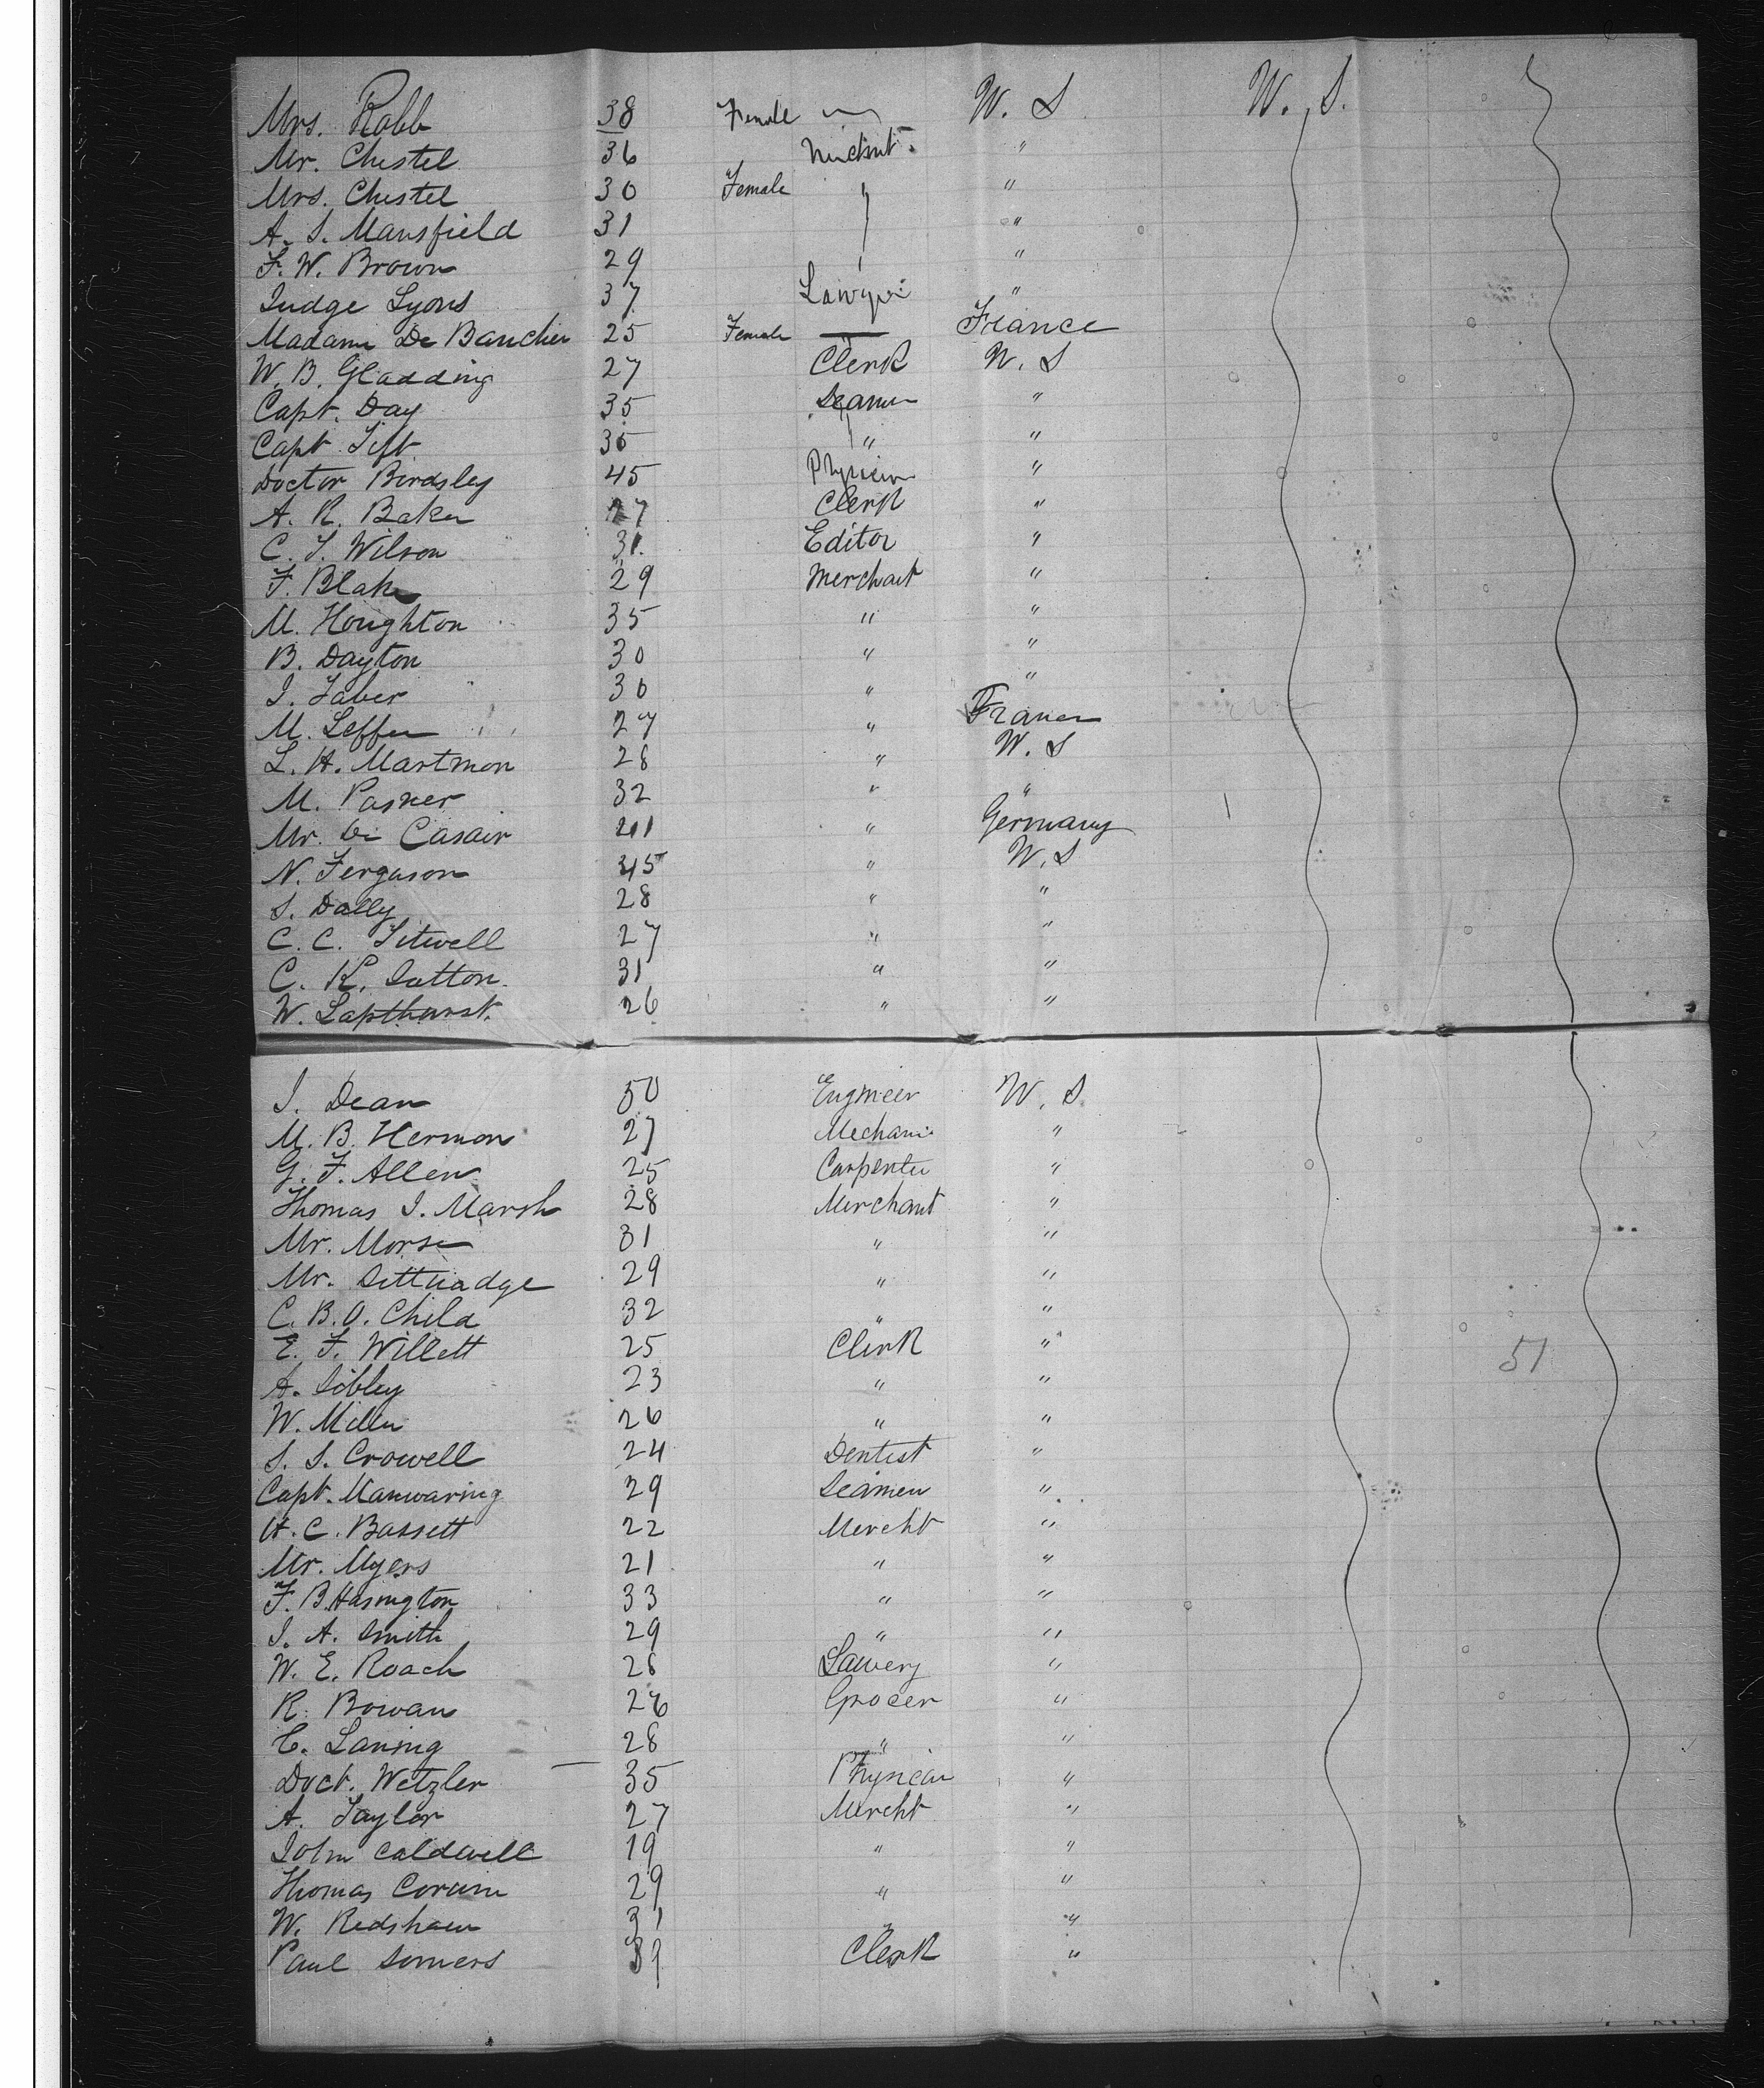 Mrs. Robb 38 Female W. S W. S.
Mr. Chestel 36 "
Mrs. Chestel 30 Female "
A. S. Mansfield 31 "
F. W. Brown 29 "
Judge Lyons 37 Lawyer "
Madame De Baucher 25 Female — France
W. B. Gladding 27 Clerk W. S
Capt. Day 35 "
Capt Tift. 35 " "
Doctor Birdsley 45 Physician "
A. R. Baker 27 Clerk "
C. T. Wilson 31. Editor "
F. Blake 29 Merchant "
M. Houghton 35 " "
B. Dayton 30 " "
I. Taber 30 " "
M. Leffer 27 " France
L. H. Martmon 28 " W. S
M. Pasner 32 " "
Mr. De Casair 21 " Germany
N. Ferguson 45 " W. S
S. Dally 28 " "
C. C. Titwell 27 " "
C. K. Sutton. 31 " "
W. Lapthurst. 26 " "
I. Dean 50 Engineer W. S.
M. B. Hermon 27 Mechanic "
G. F. Allen 25 Carpenter "
Thomas I. Marsh 28 Merchant "
Mr. Morse 31 " "
Mr. 29 " "
C. B. O. Child 32 " "
E. F. Willett 25 Clerk " 51
A. Sibley 23 " "
W. Miller 26 " "
S. S. Crowell 24 Dentist "
Capt. Manwaring 29 Seamen "
H. C. Bassett 22 Mercht "
Mr. Myers 21 " "
F. B. Harington 33 " "
I. A. Smith 29 " "
W. E. Roach 26 Lawery "
R. Bowan 26 Grocer "
C. Laning 28 " "
Doct. Wetzler — 35 Physician "
A. Taylor 27 Mercht "
John Caldwell 19 " "
Thomas Corwin 29 " "
W. Redshaw 31 " "
Paul Somers 39 Clerk "